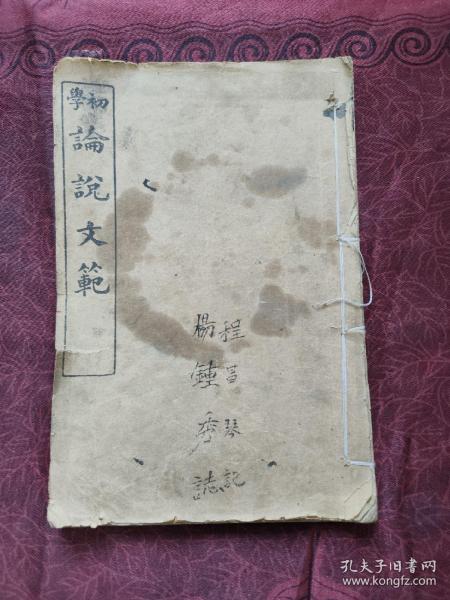 初學論說文範
程昌琴記
楊鍾秀誌
孔夫子旧书网
www.kongfz.com